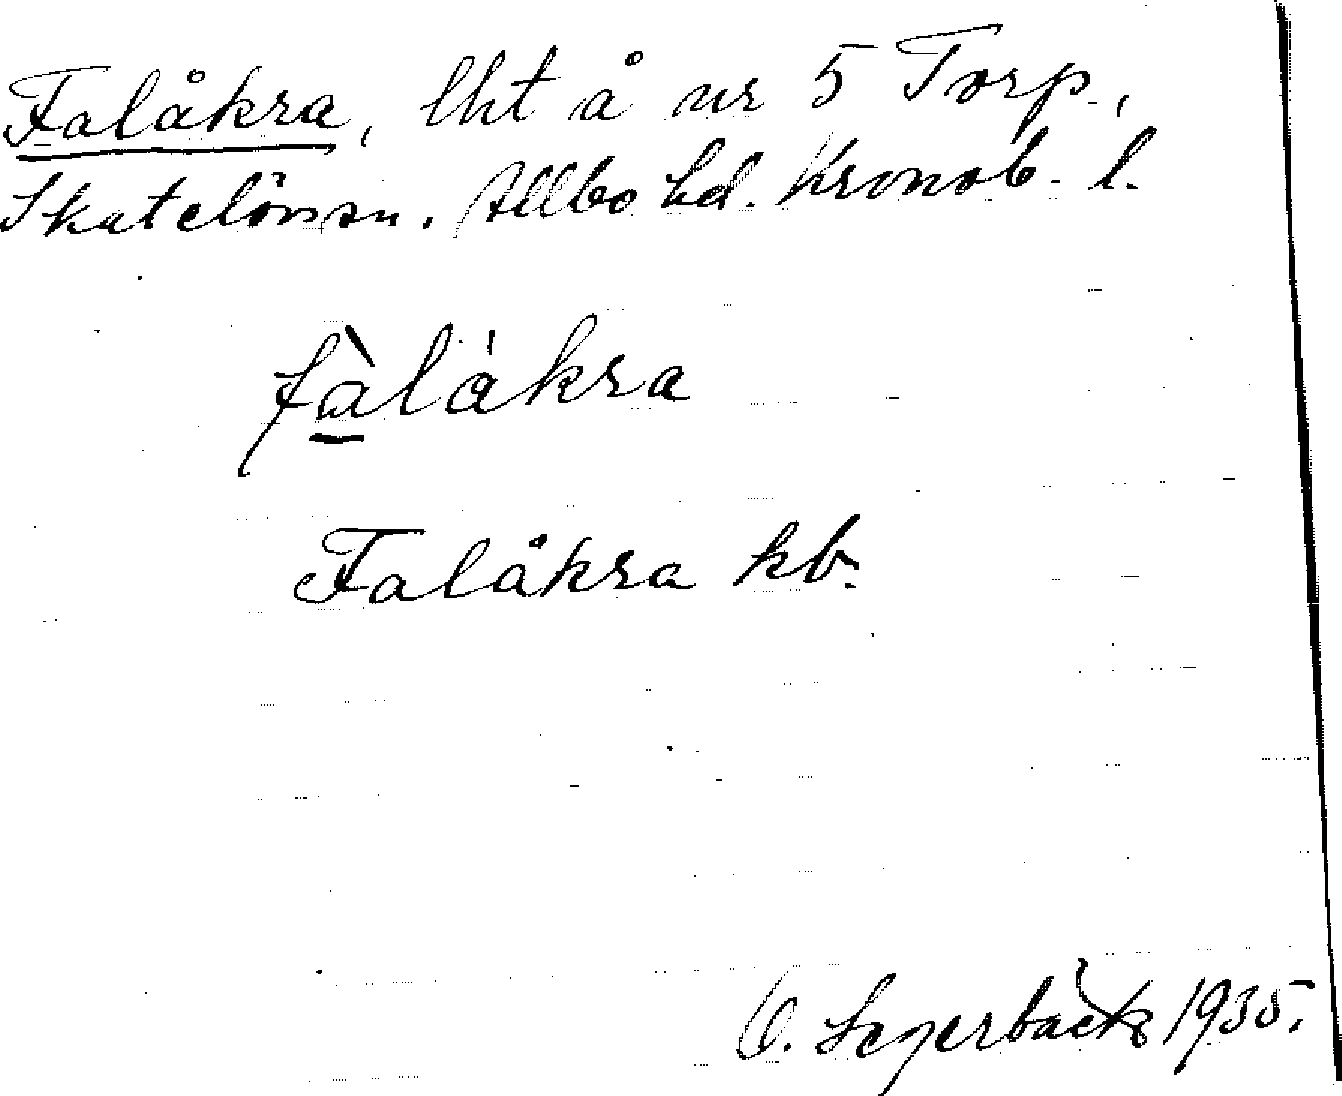 Falåkra, lht å nr 5 Torp.,
Skatelövs sn. Allbo hd. Kronob. l.
fàlåkra
Falåkra kb.
O. Segerbäck 1935.